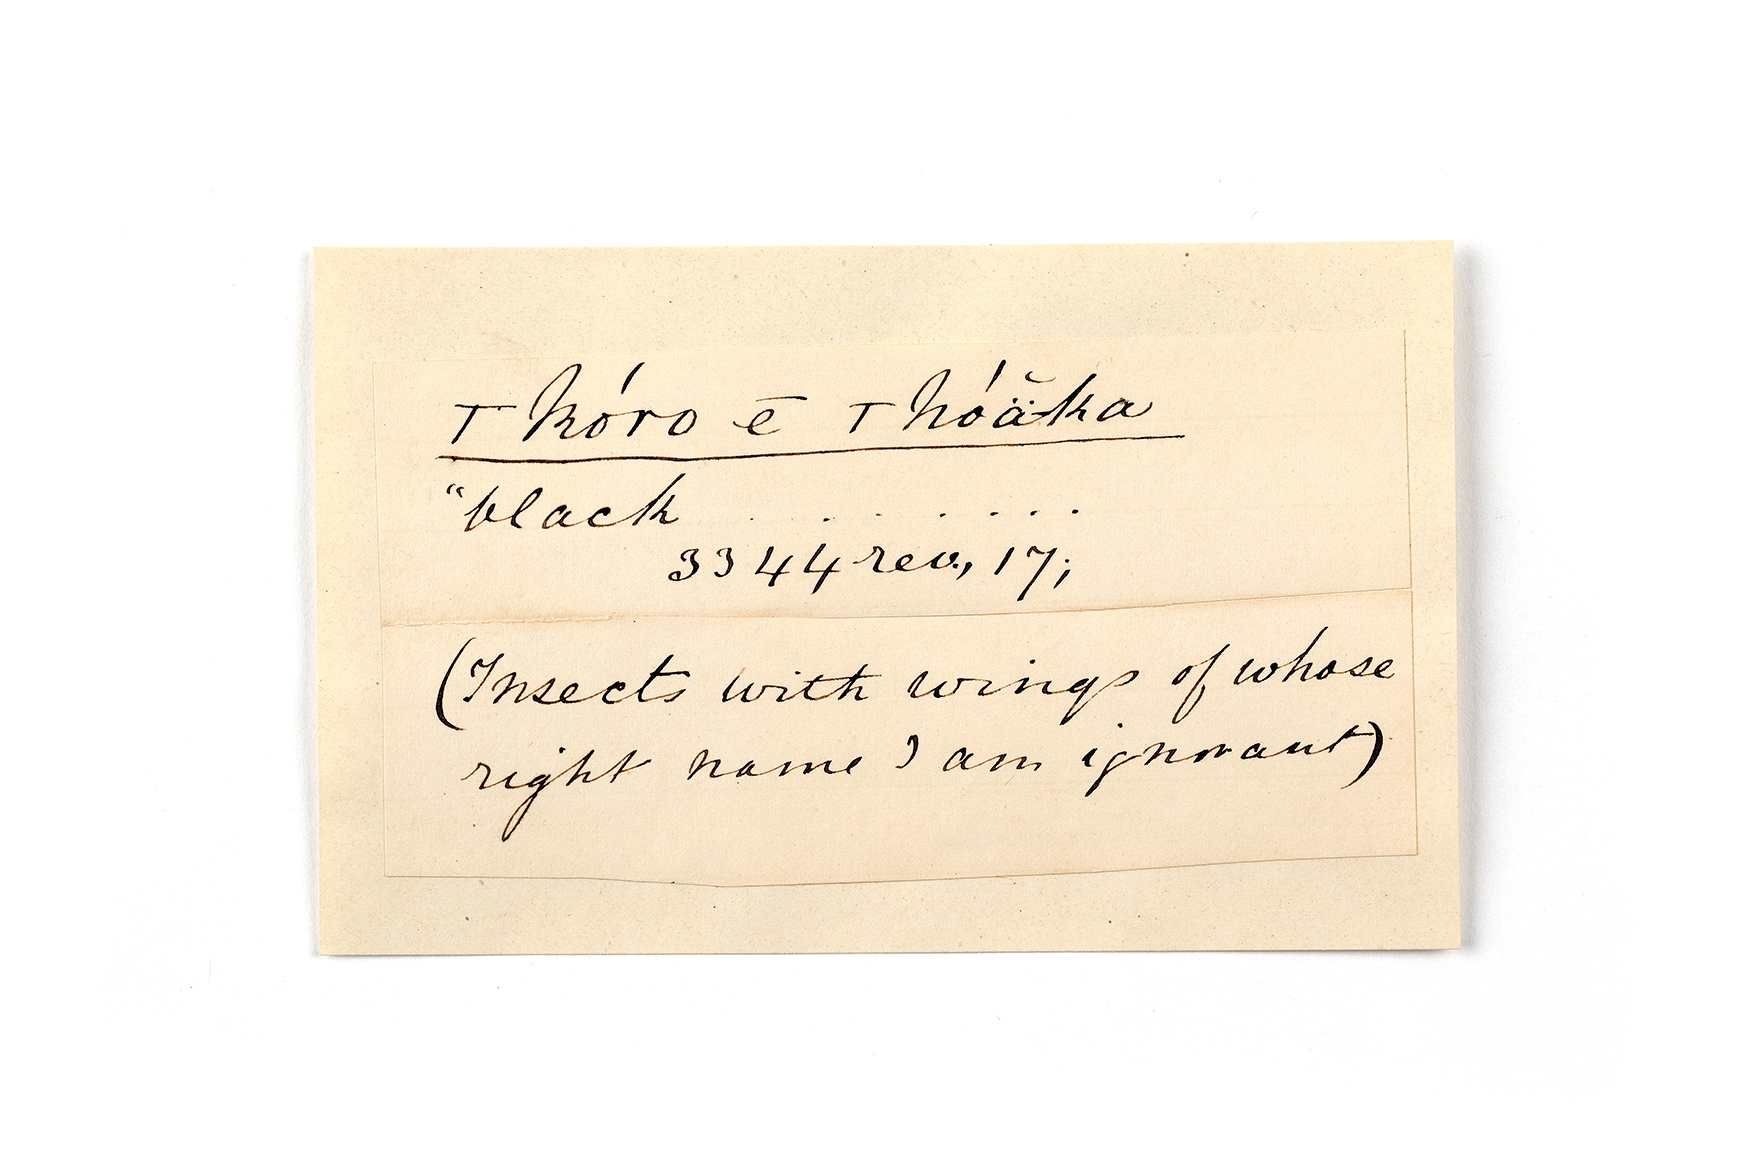 ⊤ kóro ē ⊤ hóä̆ka
"black . . . . . . . .
3344 rev., 17;
(Insects with wings of whose
right name I am ignorant)